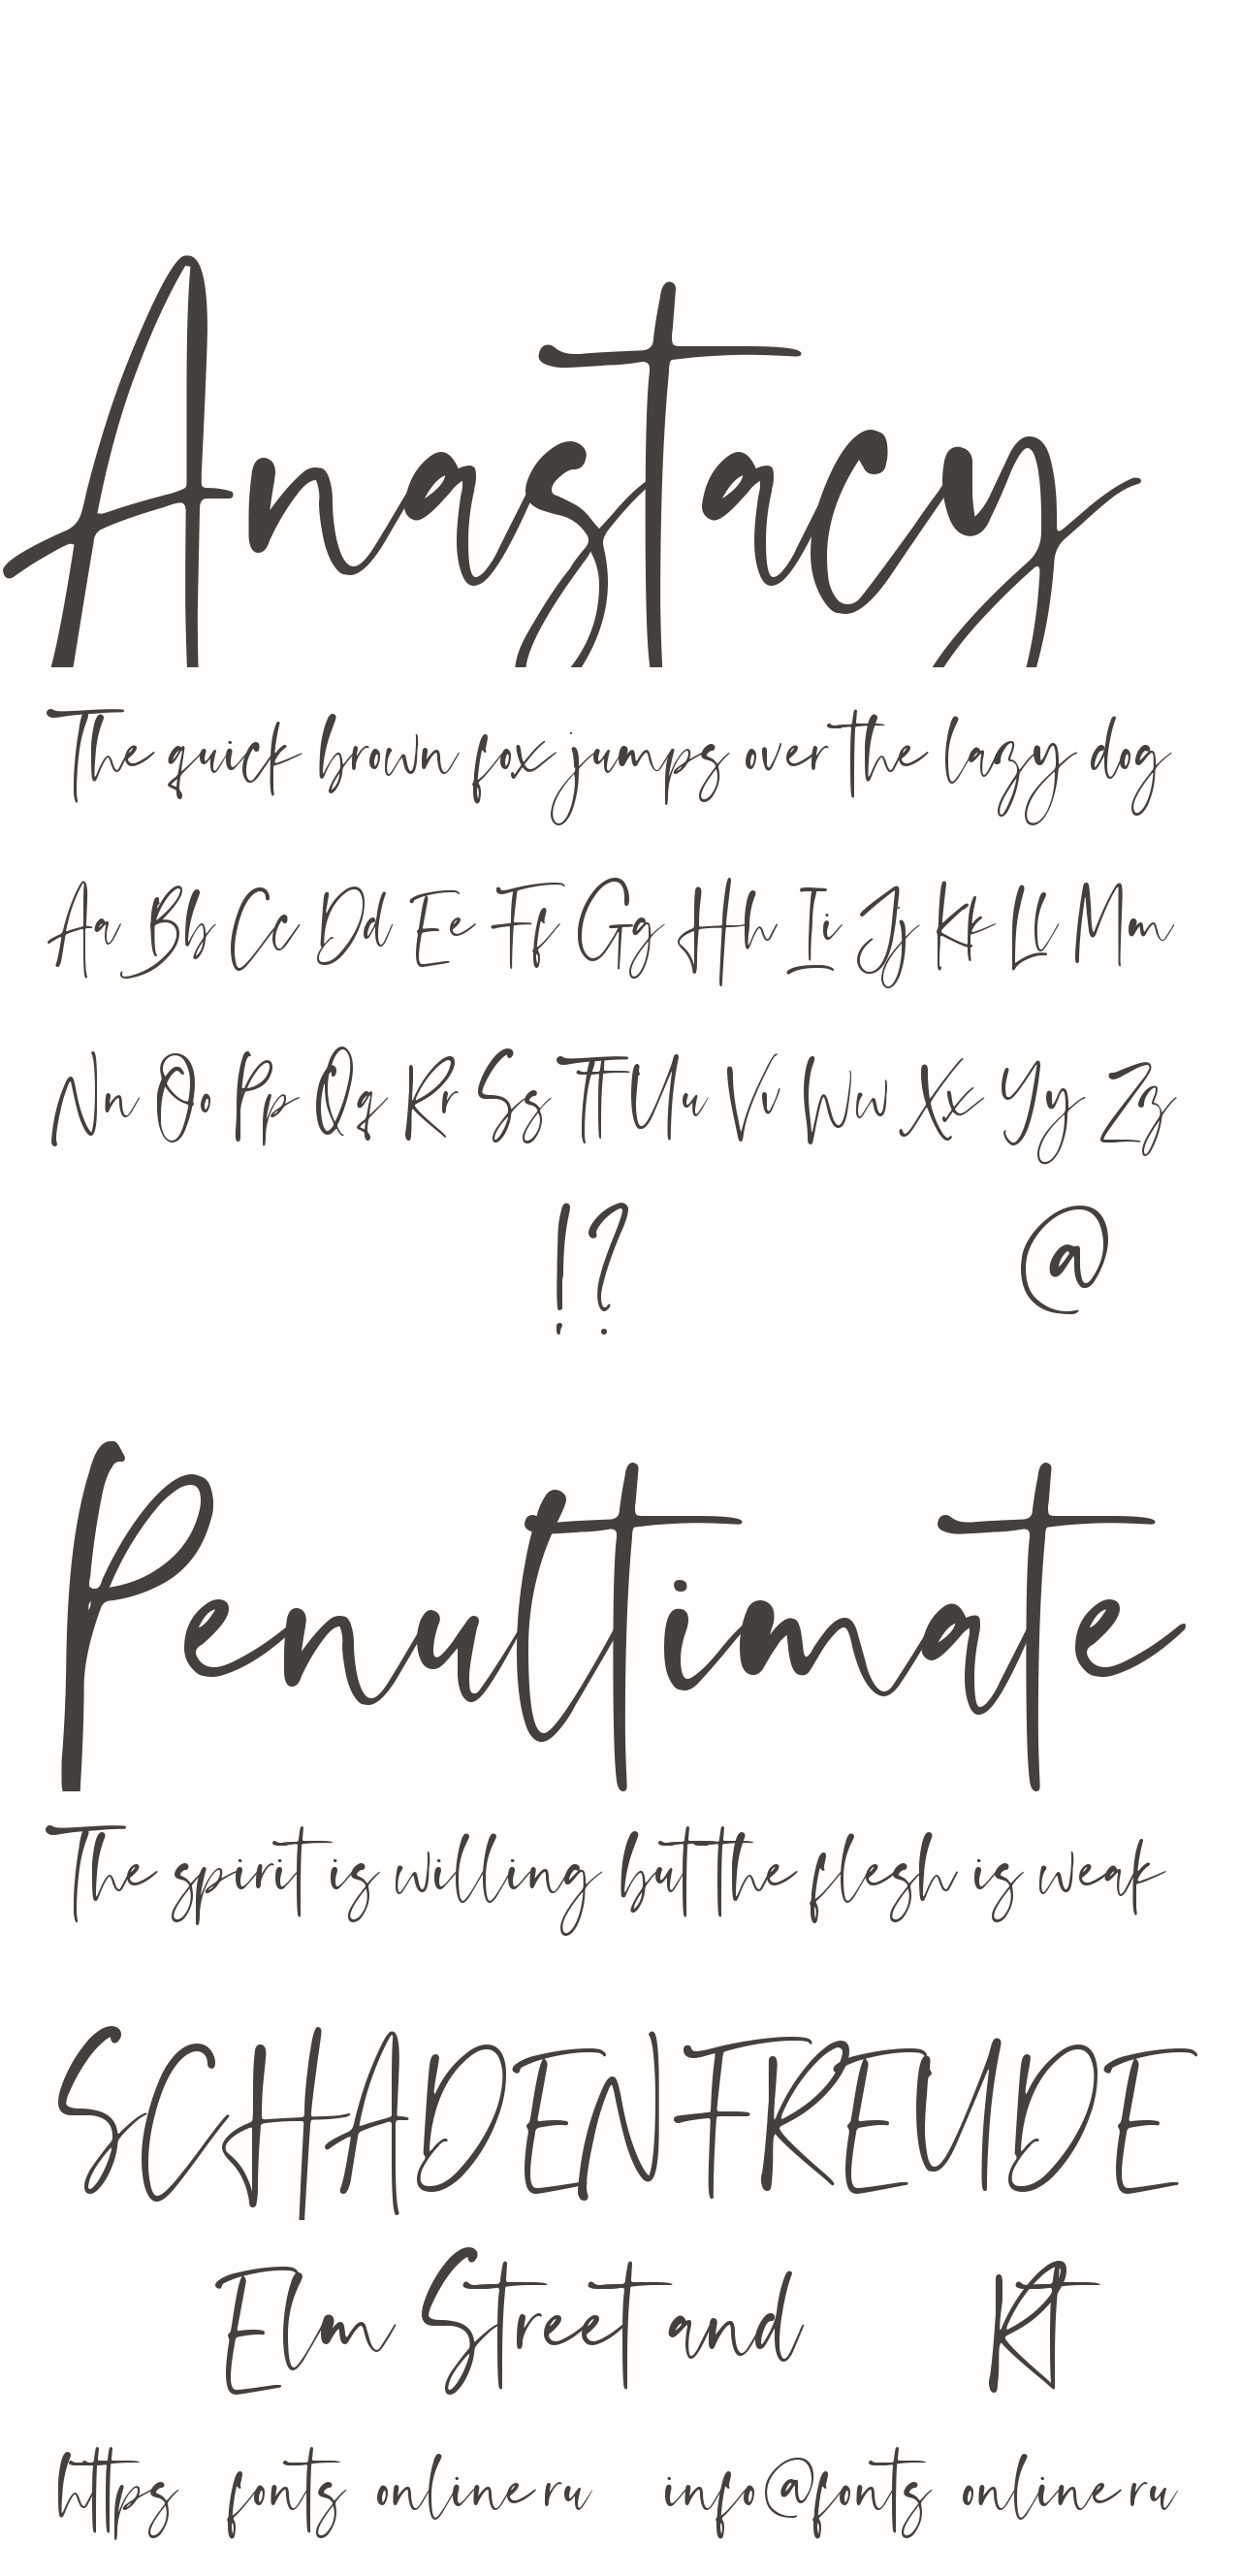 Anastacy
The quick brown fox jumps over the lazy dog
Aa Bb Cc Dd Ee Ff Gg Hh Ii Jj Kk Ll Mm
Nn Oo Pp Qq Rr Ss Tt Uu Vv Ww Xx Yy Zz
!? @
Penultimate
The spirit is willing but the flesh is weak
SCHADENFREUDE
Elm Street and Rt
https fonts online ru info@fonts online ru